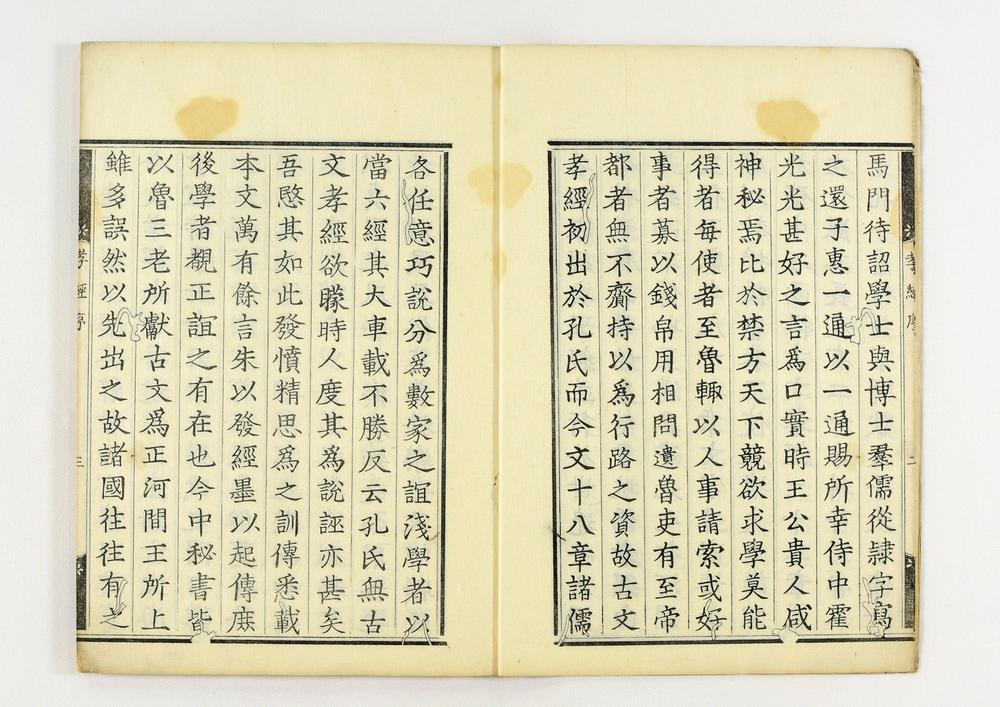 馬門待詔學士與博士羣儒從隷字寫
之還子惠一通以一通賜所幸侍中霍
光光甚好之言爲口實時王公貴人咸
神秘焉比於禁方天下競欲求學莫能
得者每使者至魯輒以人事請索或好
事者募以錢帛用相問遺魯吏有至帝
都者無不齎持以爲行路之資故古文
孝經初出於孔氏而今文十八章諸儒
孝經序
二
各任意巧說分爲數家之誼淺學者以
當六經其大車載不勝反云孔氏無古
文孝經欲矇時人度其爲說誣亦甚矣
吾愍其如此發憤精思爲之訓傳悉載
本文萬有餘言朱以發經墨以起傳庶
後學者覩正誼之有在也今中秘書皆
以魯三老所獻古文爲正河間王所上
雖多誤然以先出之故諸國往往有之
孝經序
三